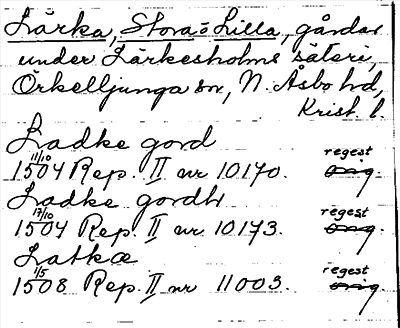 Lärka, Stora o Lilla, gårdar
under Lärkesholms säteri,
Örkelljunga sn, N. Åsbo hd,
Krist. l.
Ladke gord
11/10 1504 Rep. II nr 10170. regest orig.
Ladke gordh
17/10 1504 Rep. II nr 10173. regest orig.
Latkæ
1/5 1508 Rep. II nr 11003. regest orig.